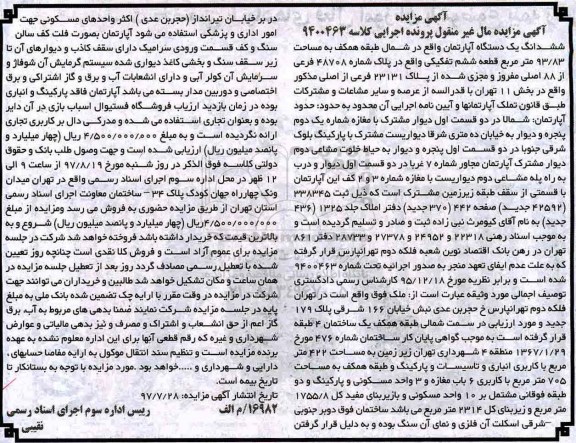 آگهی مزایده
آگهی مزایده مال غیر منقول پرونده اجرایی کلاسه ۹۴۰۰۴۶۳
ششدانگ یک دستگاه آپارتمان واقع در شمال طبقه همکف به مساحت
۹۳/۸۳ متر مربع قطعه ششم تفکیکی واقع در پلاک شماره ۴۸۷۰۸ فرعی
از ۸۸ اصلی مفروز و مجزی شده از پلاک ۲۳۱۳۱ فرعی از اصلی مذکور
واقع در بخش ۱۱ تهران با قدرالسه از عرصه و سایر مشاعات و مشترکات
طبق قانون تملک آپارتمانها و آیین نامه اجرایی آن محدود به حدود: حدود
آپارتمان: شمالا در دو قسمت اول دیوار مشترک با مغازه شماره یک دوم
پنجره و دیوار به خیابان ده متری شرقا دیواریست مشترک با پارکینگ بلوک
شرقی جنوبا در دو قسمت اول پنجره و دیوار به حیاط خلوت مشاعی دوم
دیوار مشترک آپارتمان مجاور شماره ۷ غربا در دو قسمت اول دیوار و درب
به راه پله مشاعی دوم دیواریست با مغازه شماره ۳ و ۲ کف این آپارتمان
با قسمتی از سقف طبقه زیرزمین مشترک است که ذیل ثبت ۳۳۸۳۴۵
(۴۲۵۹۲ جدید) صفحه ۴۴۲ (۳۷۰ جدید) دفتر املاک جلد ۱۳۲۵ (۴۳۶
جدید) به نام آقای کیومرث نبی زاده ثبت و صادر و تسلیم گردیده است و
به موجب اسناد رهنی ۲۲۳۱۸ و ۲۴۹۵۲ و ۲۷۳۷۸ و ۲۸۷۳۳ دفتر ۸۶۱
تهران در رهن بانک اقتصاد نوین شعبه فلکه دوم تهرانپارس قرار گرفته
که به علت عدم ایفای تعهد منجر به صدور اجرائیه تحت شماره ۹۴۰۰۴۶۳
شده است و برابر نظریه مورخ ۹۵/۱۲/۱۸ کارشناس رسمی دادگستری
توصیف اجمالی مورد وثیقه عبارت است از: ملک فوق واقع است در تهران
فلکه دوم تهرانپارس خ حجربن عدی نبش خیابان ۱۶۶ شرقی پلاک ۱۷۹
جدید و مورد ارزیابی در سمت شمالی طبقه همکف یک ساختمان ۴ طبقه
قرار گرفته است به موجب گواهی پایان کار ساختمان شماره ۴۷۶ مورخ
۱۳۶۷/۱/۲۹ منطقه ۴ شهرداری تهران زیر زمین به مساحت ۴۲۲ متر
مربع با کاربری انباری و تاسیسات و پارکینگ و طبقه همکف به مساحت
۷۰۵ متر مربع با کاربری ۶ باب مغازه و ۳ واحد مسکونی و پارکینگ و دو
طبقه فوقانی مشتمل بر ۱۰ واحد مسکونی و بازیربنای مفید کل ۱۷۵۵/۸
متر مربع و زیربنای کل ۲۳۱۴ متر مربع می باشد ساختمان فوق دوبر جنوبی
–شرقی اسکلت آن فلزی و نمای آن سنگ بوده و به دلیل قرار گرفتن
در بر خیابان تیرانداز (حجربن عدی ) اکثر واحدهای مسکونی جهت
امور اداری و پزشکی استفاده می شود آپارتمان بصورت فلت کف سالن
سنگ و کف قسمت ورودی سرامیک دارای سقف کاذب و دیوارهای آن تا
زیر سقف سنگ و بخشی کاغذ دیواری شده سیستم گرمایش آن شوفاژ و
سرمایش آن کولر آبی و دارای انشعابات آب و برق و گاز اشتراکی و برق
اختصاصی و دوربین مدار بسته می باشد آپارتمان فاقد پارکینگ و انباری
بوده در زمان بازدید ارزیاب فروشگاه فستیوال اسباب بازی در آن دایر
بوده و بعنوان تجاری استفاده می شده و مدرکی دال بر کاربری تجاری
ارائه نگردیده است و به مبلغ ۴/۵۰۰/۰۰۰/۰۰۰ ریال (چهار میلیارد و
پانصد میلیون ریال) ارزیابی شده است و جهت وصول طلب بانک و حقوق
دولتی کلاسه فوق الذکر در روز شنبه مورخ ۹۷/۸/۱۹ از ساعت ۹ الی
۱۲ ظهر در محل اداره سوم اجرای اسناد رسمی واقع در تهران میدان
ونک چهارراه جهان کودک پلاک ۳۴ – ساختمان معاونت اجرای اسناد رسمی
استان تهران از طریق مزایده حضوری به فروش می رسد ومزایده از مبلغ
۴/۵۰۰/۰۰۰/۰۰۰ریال (چهار میلیارد و پانصد میلیون ریال) شروع و به
بالاترین قیمت که خریدار داشته باشد فروخته خواهد شد شرکت در جلسه
مزایده برای عموم آزاد است و فروش کلا نقدی است چنانچه روز تعیین
شده با تعطیل رسمی مصادف گردد روز بعد از تعطیل جلسه مزایده در
همان ساعت و مکان تشکیل خواهد شد طالبین و خریداران می توانند جهت
شرکت در مزایده در وقت مقرر با ارایه چک تضمین شده بانک ملی به مبلغ
پایه در جلسه مزایده شرکت نمایند ضمنا بدهی های مربوط به آب، برق
گاز اعم از حق انشعاب و اشتراک و مصرف و نیز بدهی مالیاتی و عوارض
شهرداری و غیره که رقم قطعی آنها برای این اداره معلوم نشده به عهده
برنده مزایده است و تنظیم سند انتقال موکول به ارایه مفاصا حسابهای
دارایی و شهرداری و ..... خواهد بود .مورد مزایده با توجه به بستانکار تا
تاریخ بیمه است.
تاریخ انتشار آگهی مزایده: ۹۷/۷/۲۸
۱۶۹۸۲/م الف رییس اداره سوم اجرای اسناد رسمی
نقیبی